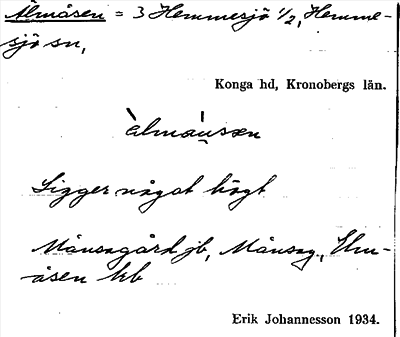 Älmåsen = 3 Hemmesjö 1/2, Hemme-
sjö sn,
Konga hd, Kronobergs län.
Ligger något högt
Månsagård jb, Månsag., Elm-
åsen kb
Erik Johannesson 1934.